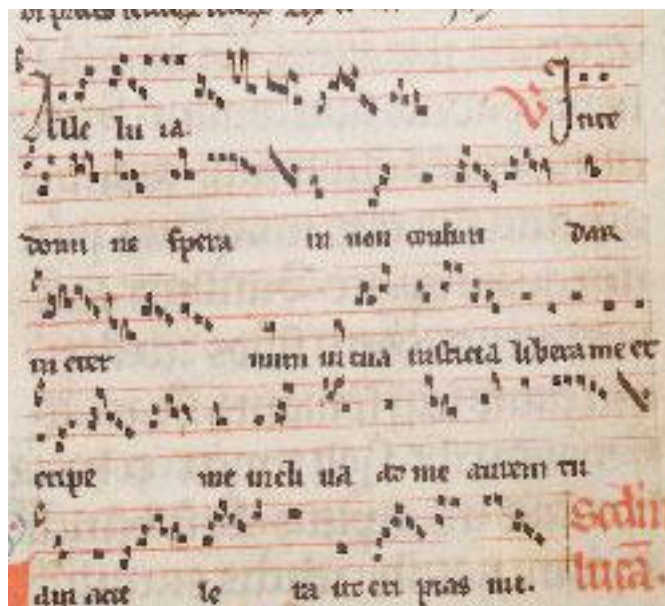 Alle lu ia. V. Jn te
domi ne spera ui non confun dar
in eter num in tua iusticia libera me et
eripe me incli na ad me aurem tu
am acce le ra ut eri pias me. secun
lucam.